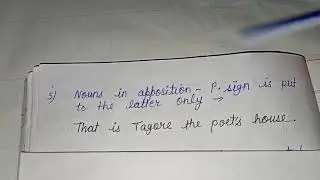 5) Nouns in apposition - P. sign is put
to the latter only →
That is Tagore the poet's house.